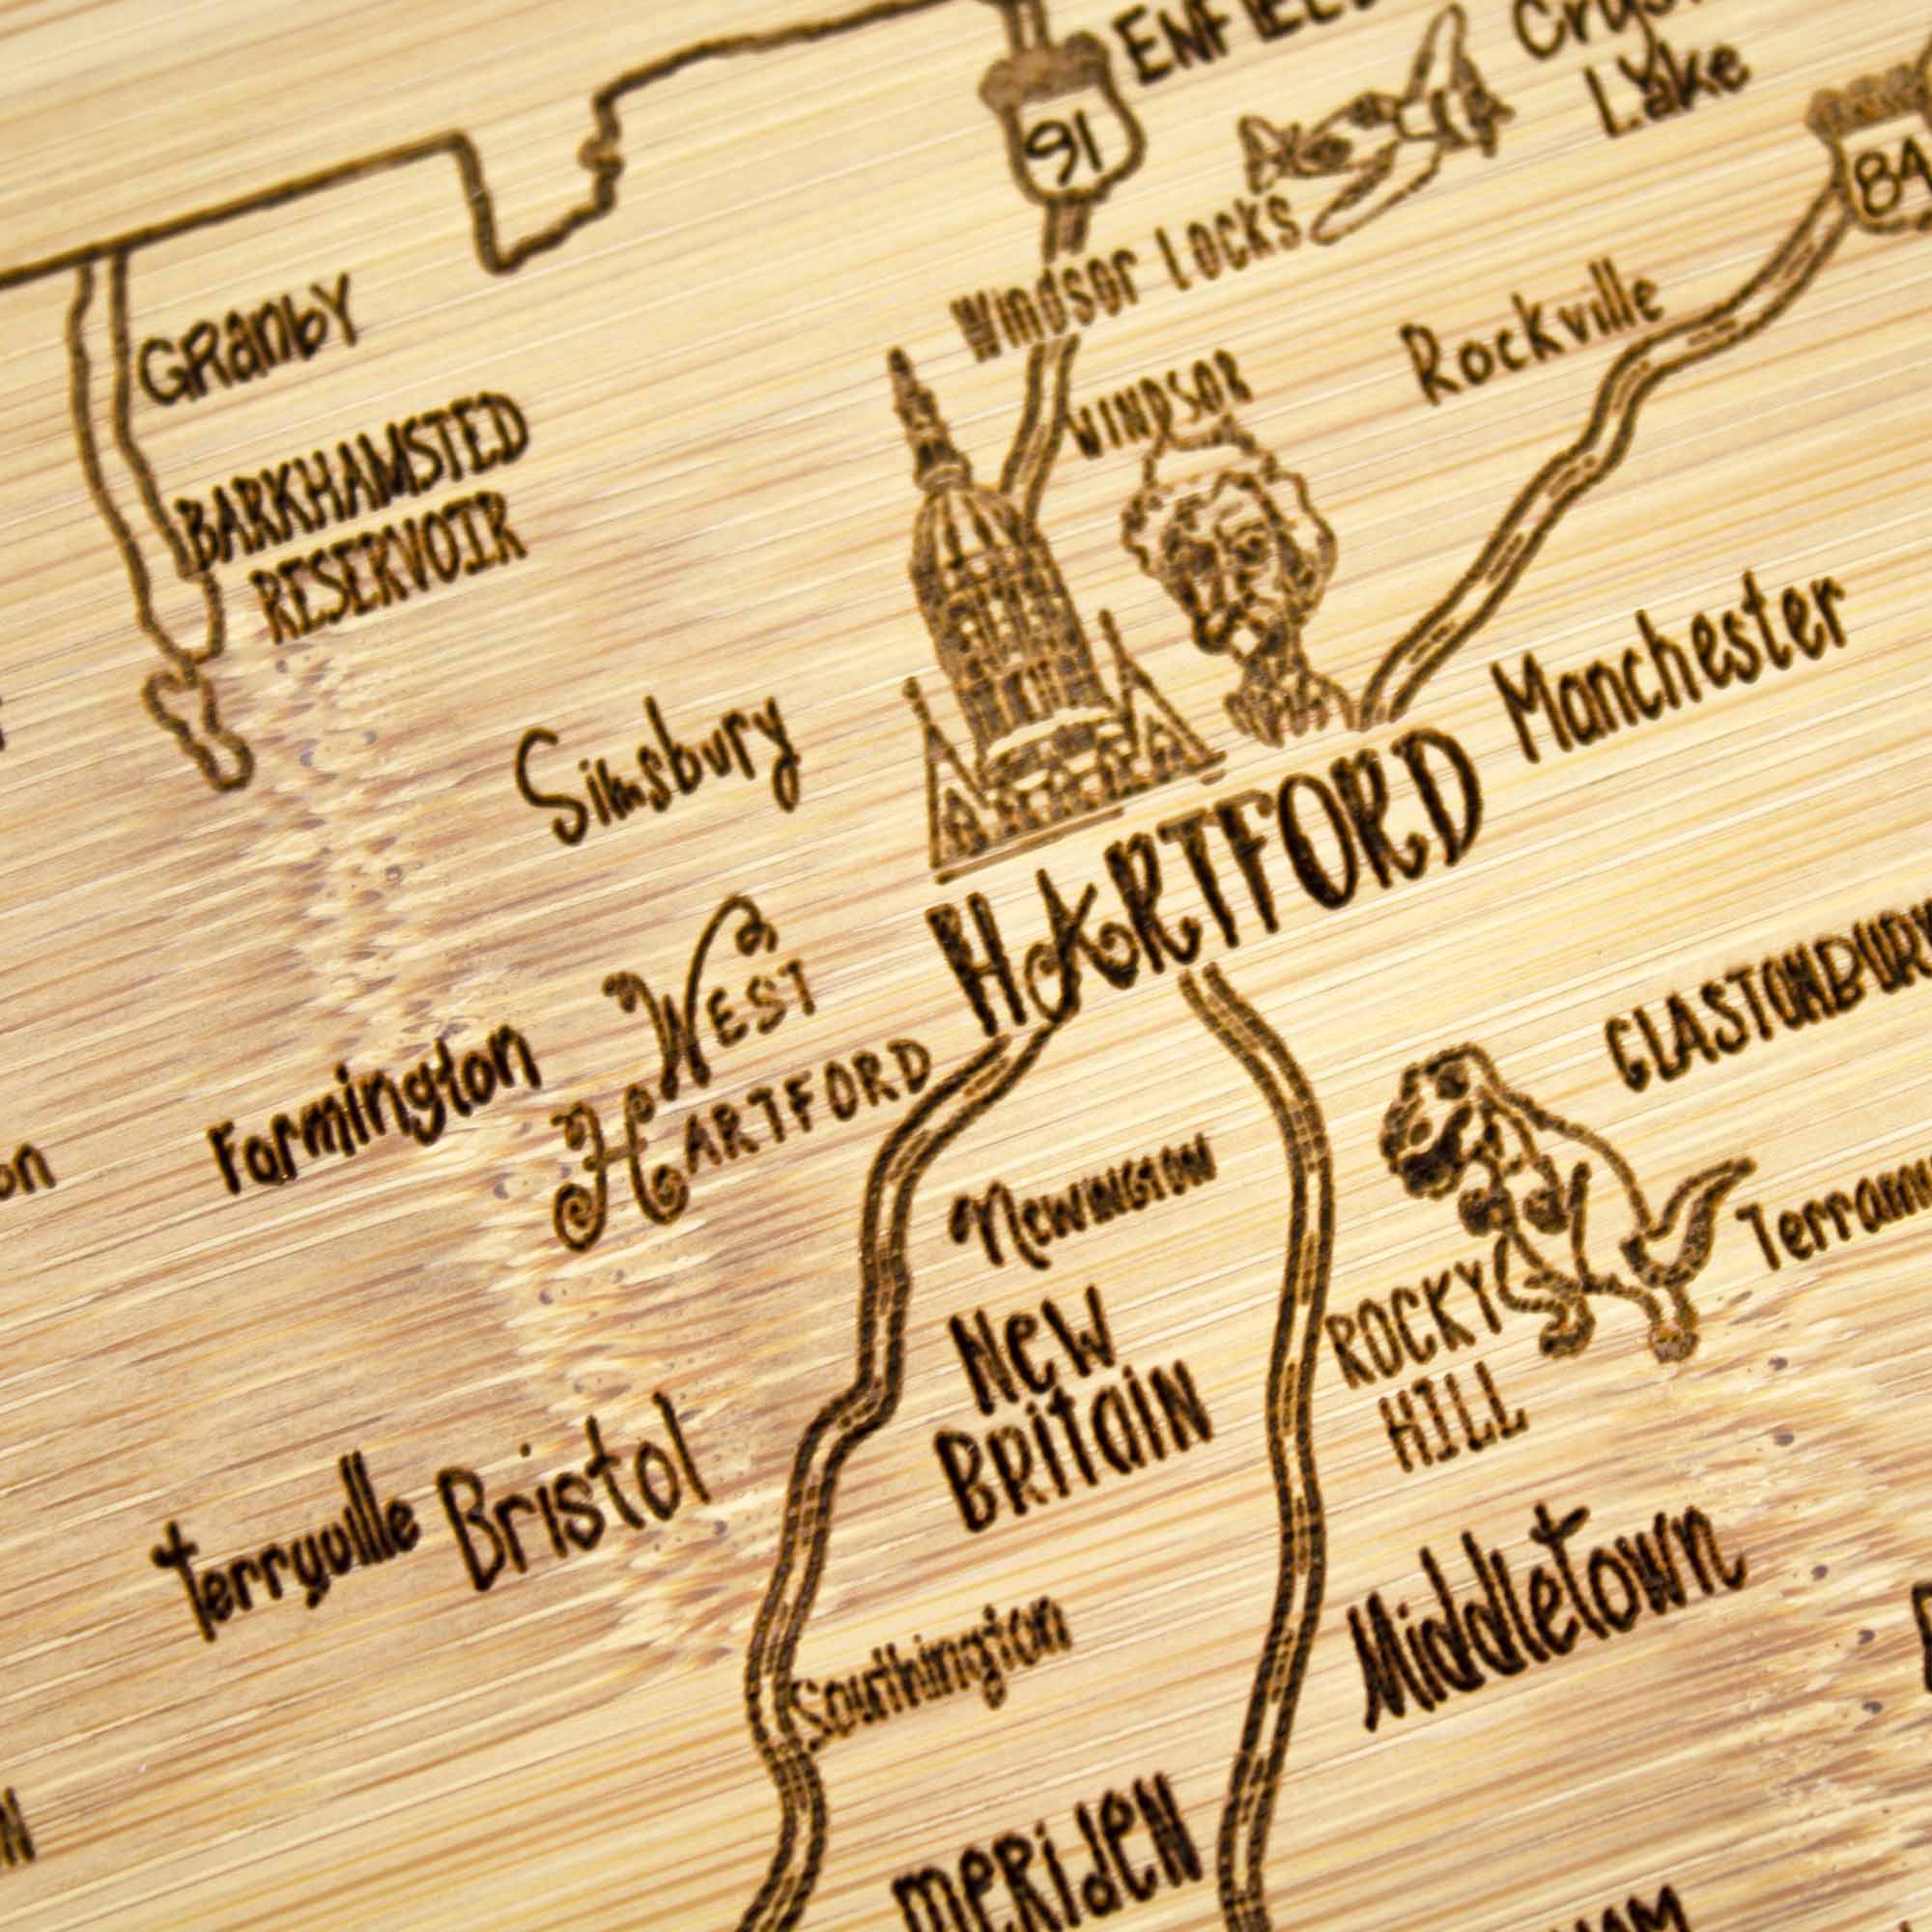 ENFIEL
Crys
Lake
91
84
Windsor Locks
GRanbY
WINDSOR
Rockville
BARKHAMSTED
RESERVOIR
Manchester
Simsbury
HARTFORD
WEST
HARTFORD
GLASTONBURY
Farmington
on
Newington
Terram
New
BRitaiN
ROCKY
HILL
Terryville
Bristol
Middletown
Southington
MeRideN
HAM